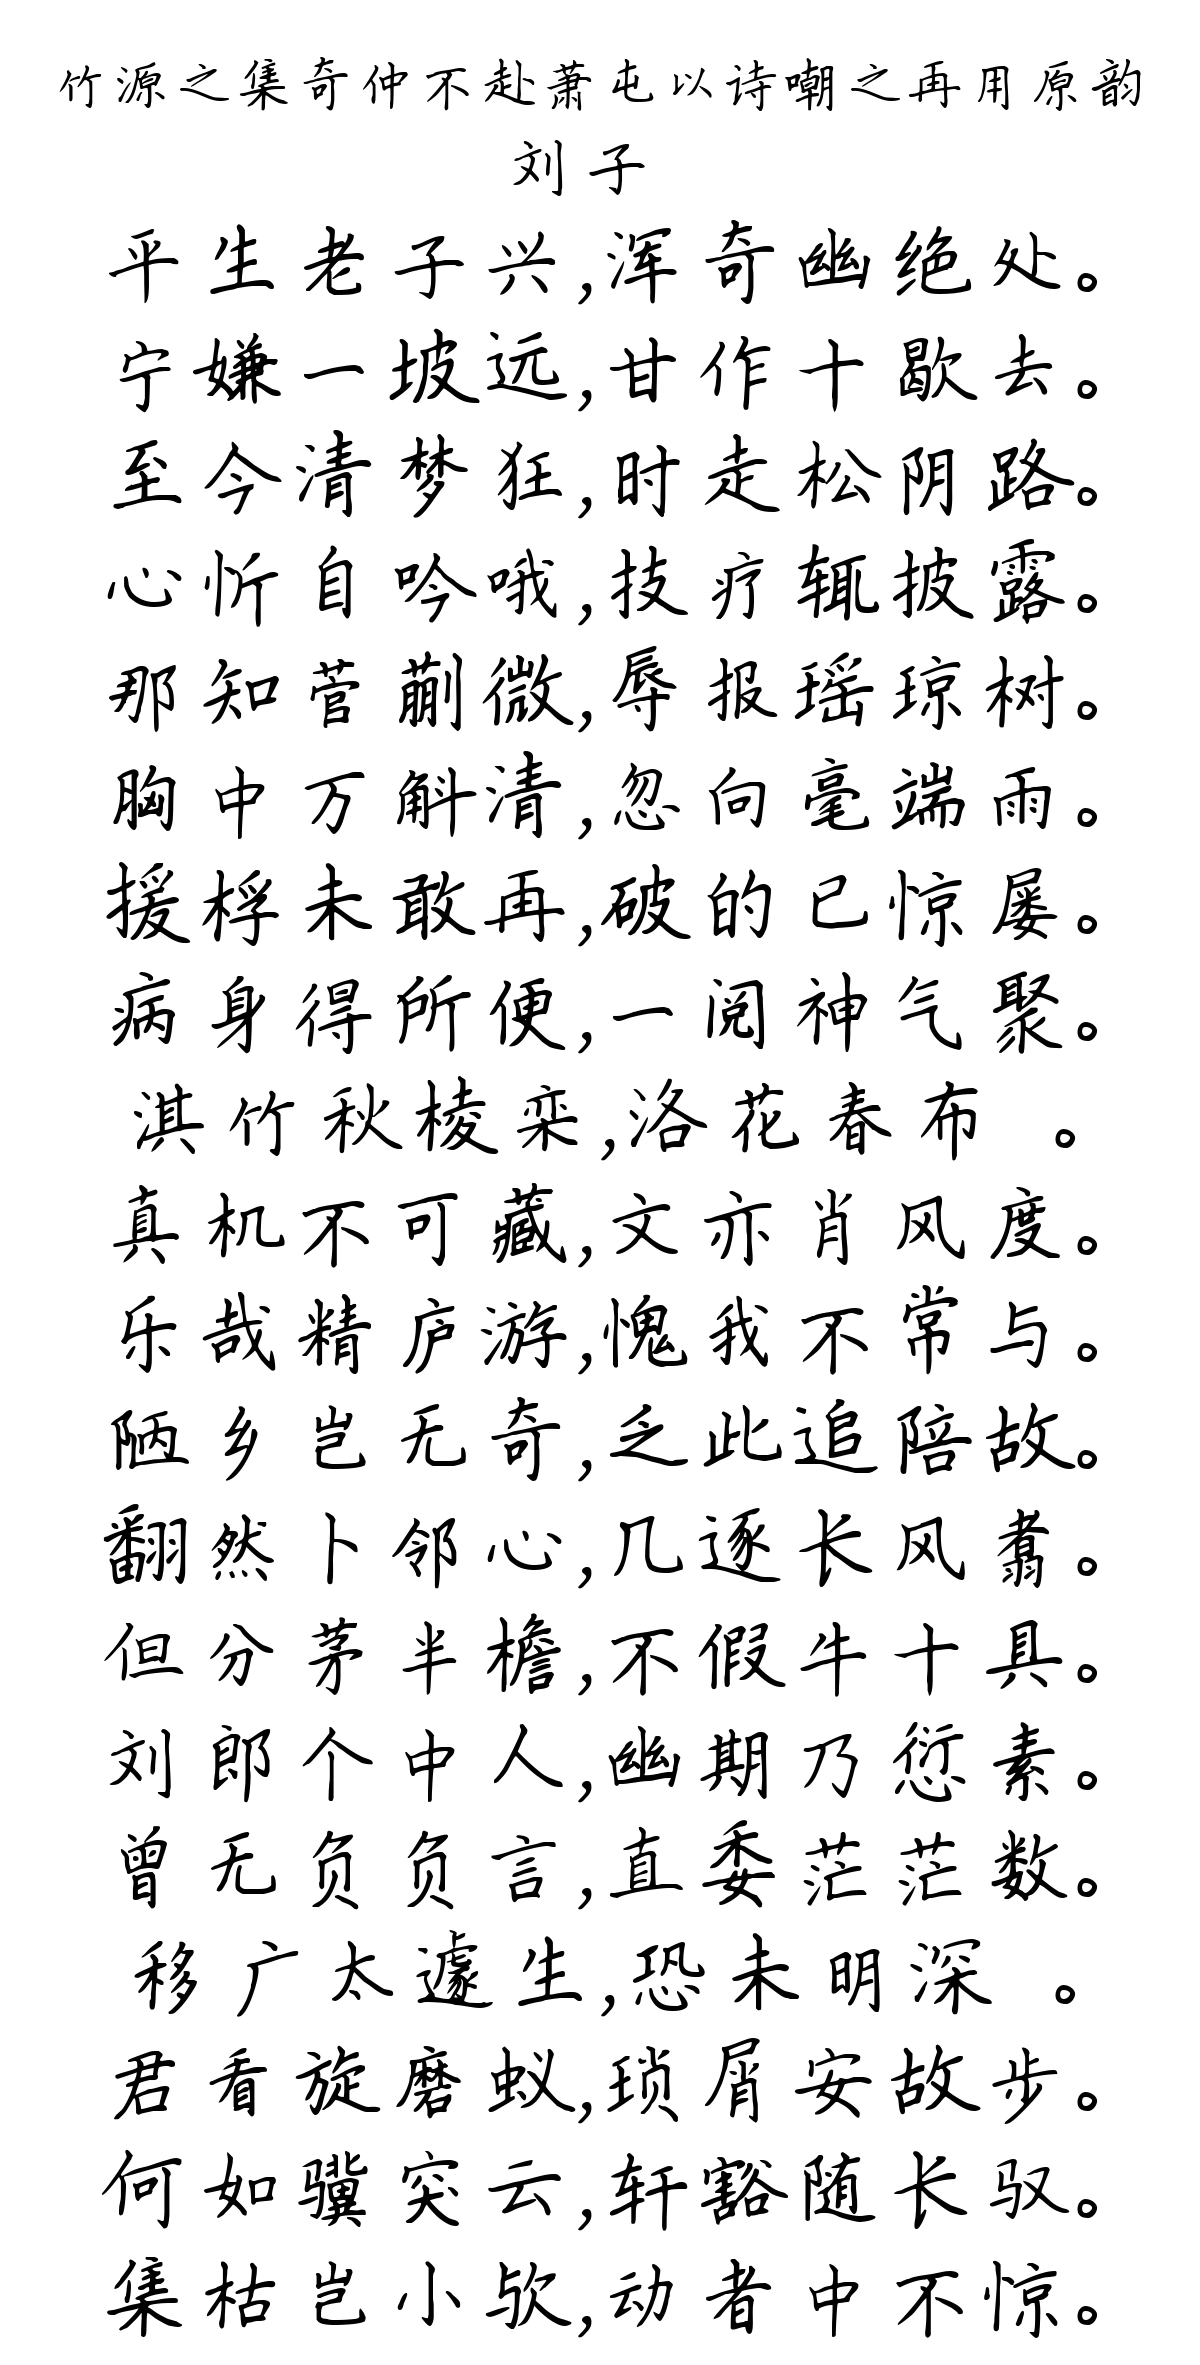 竹源之集奇仲不赴萧屯以诗嘲之再用原韵
刘子
平生老子兴,浑奇幽绝处。
宁嫌一坡远,甘作十歇去。
至今清梦狂,时走松阴路。
心忻自吟哦,技疗辄披露。
那知菅蒯微,辱报瑶琼树。
胸中万斛清,忽向毫端雨。
援桴未敢再,破的已惊屡。
病身得所便,一阅神气聚。
淇竹秋棱栾,洛花春布 。
真机不可藏,文亦肖风度。
乐哉精庐游,愧我不常与。
陋乡岂无奇,乏此追陪故。
翻然卜邻心,几逐长风翥。
但分茅半檐,不假牛十具。
刘郎个中人,幽期乃愆素。
曾无负负言,直委茫茫数。
移广太遽生,恐未明深 。
君看旋磨蚁,琐屑安故步。
何如骥突云,轩豁随长驭。
集枯岂小欤,动者中不惊。